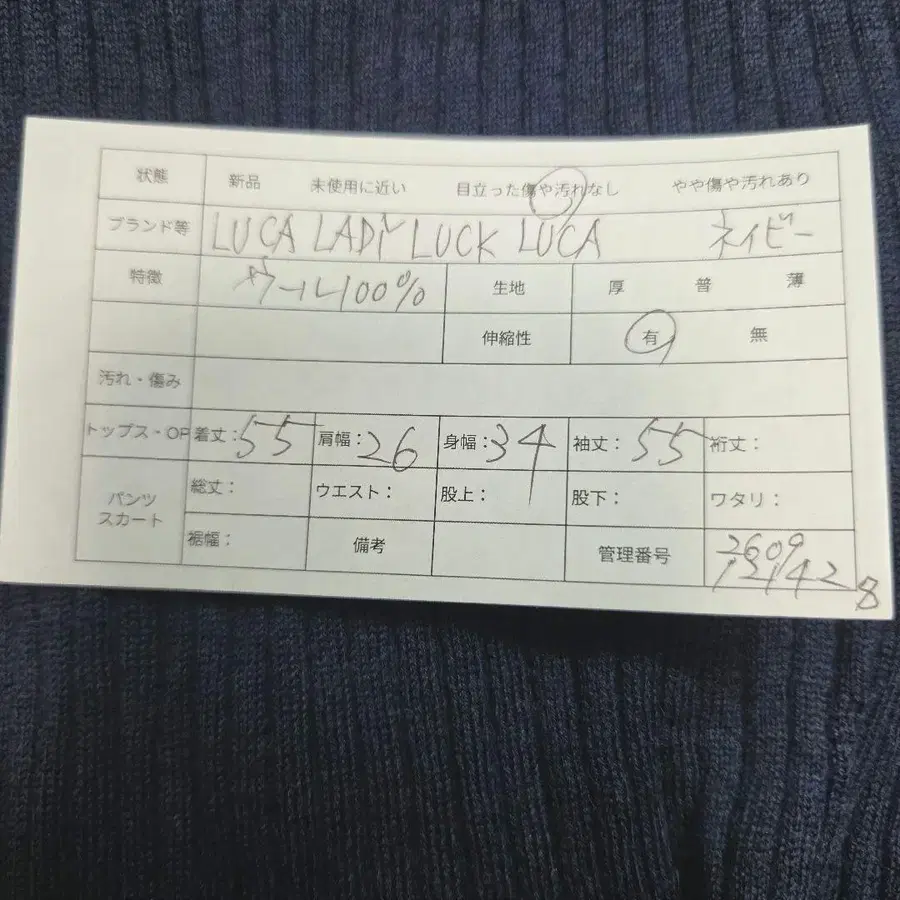 状態 新品 未使用に近い 目立った傷や汚れなし やや傷や汚れあり
ブランド等 LUCA LADY LUCK LUCA ネイビー
特徴 ウール100% 生地 厚 普 薄
伸縮性 有 無
汚れ・傷み
トップス・OP 着丈:55 肩幅:26 身幅:34 袖丈:55 裄丈:
パンツ スカート 総丈: ウエスト: 股上: 股下: ワタリ:
裾幅: 備考 管理番号 2609
121428